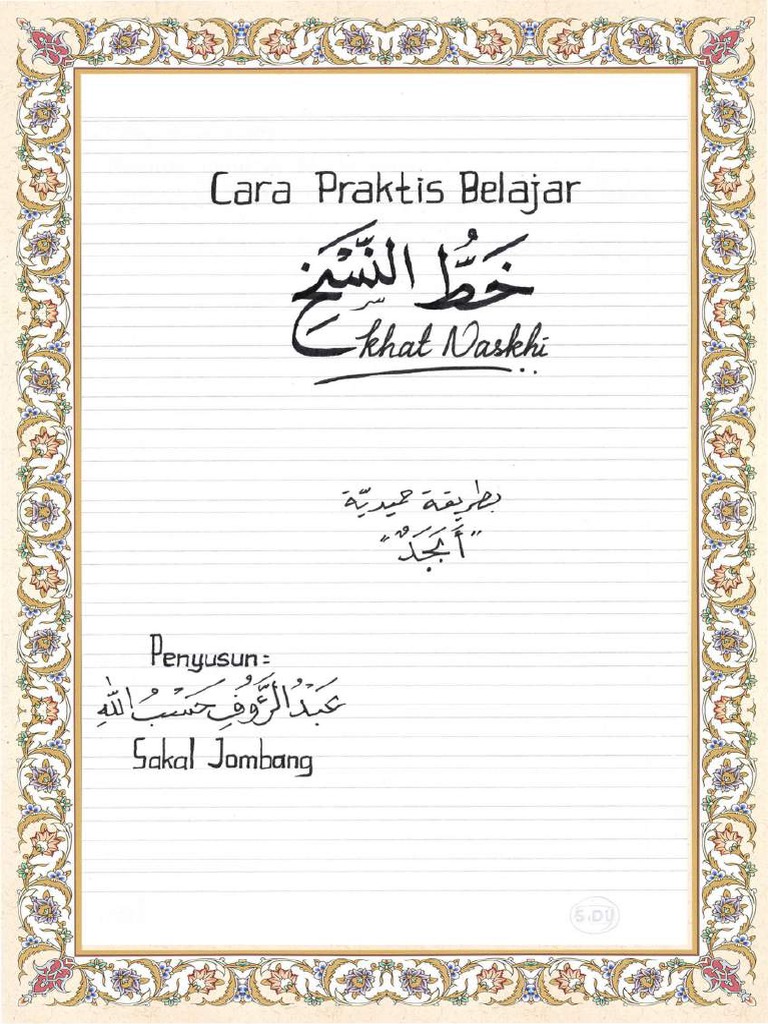 Cara Praktis Belajar
خَطُّ النَّسْخِ
khat Naskhi
بطريقة حميديّة
"أَبْجَدٌ"
Penyusun:
عَبْدُ الرَّؤُوْفِ حَسْبُ اللّٰهِ
Sakal Jombang
SiDU